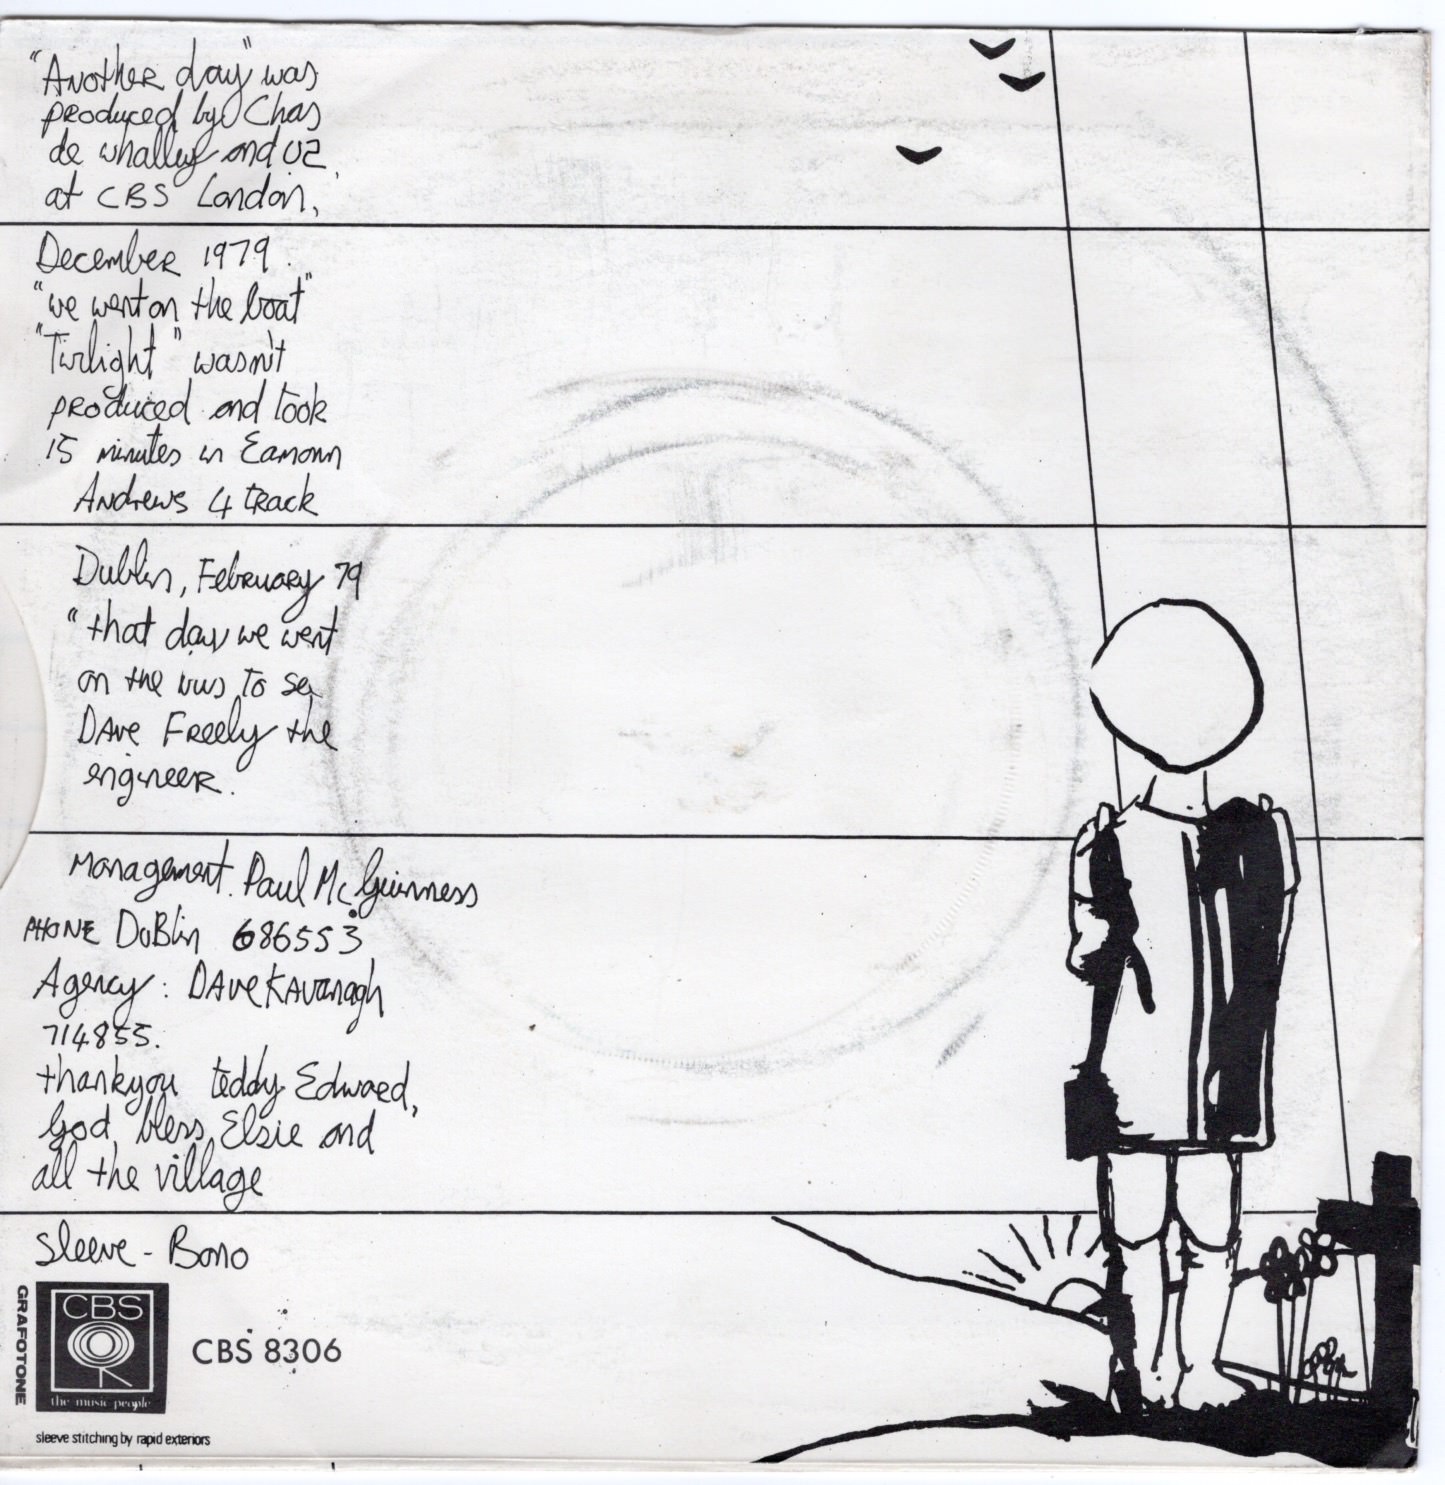 "Another day" was
produced by Chas
de whalley and U2
at CBS London,
December 1979.
"we went on the boat"
"Twilight" wasn't
produced and took
15 minutes in Eamonn
Andrews 4 track
Dublin, February 79
"that day we went
on the bus to see
Dave Freely the
engineer.
Management. Paul McGuinness
PHONE DuBlin 686553
Agency: Dave Kavanagh
714855.
thankyou teddy Edward,
God bless Elsie and
all the village
Sleeve - Bono
GRAFOTONE
CBS
the music people
CBS 8306
sleeve stitching by rapid exteriors